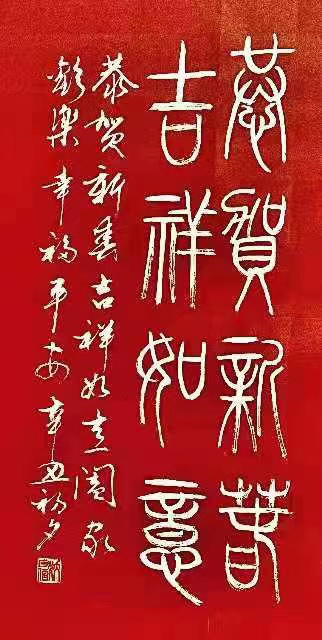 恭贺新春
吉祥如意
恭贺新春吉祥如意阖家
欢乐幸福平安辛丑初夕